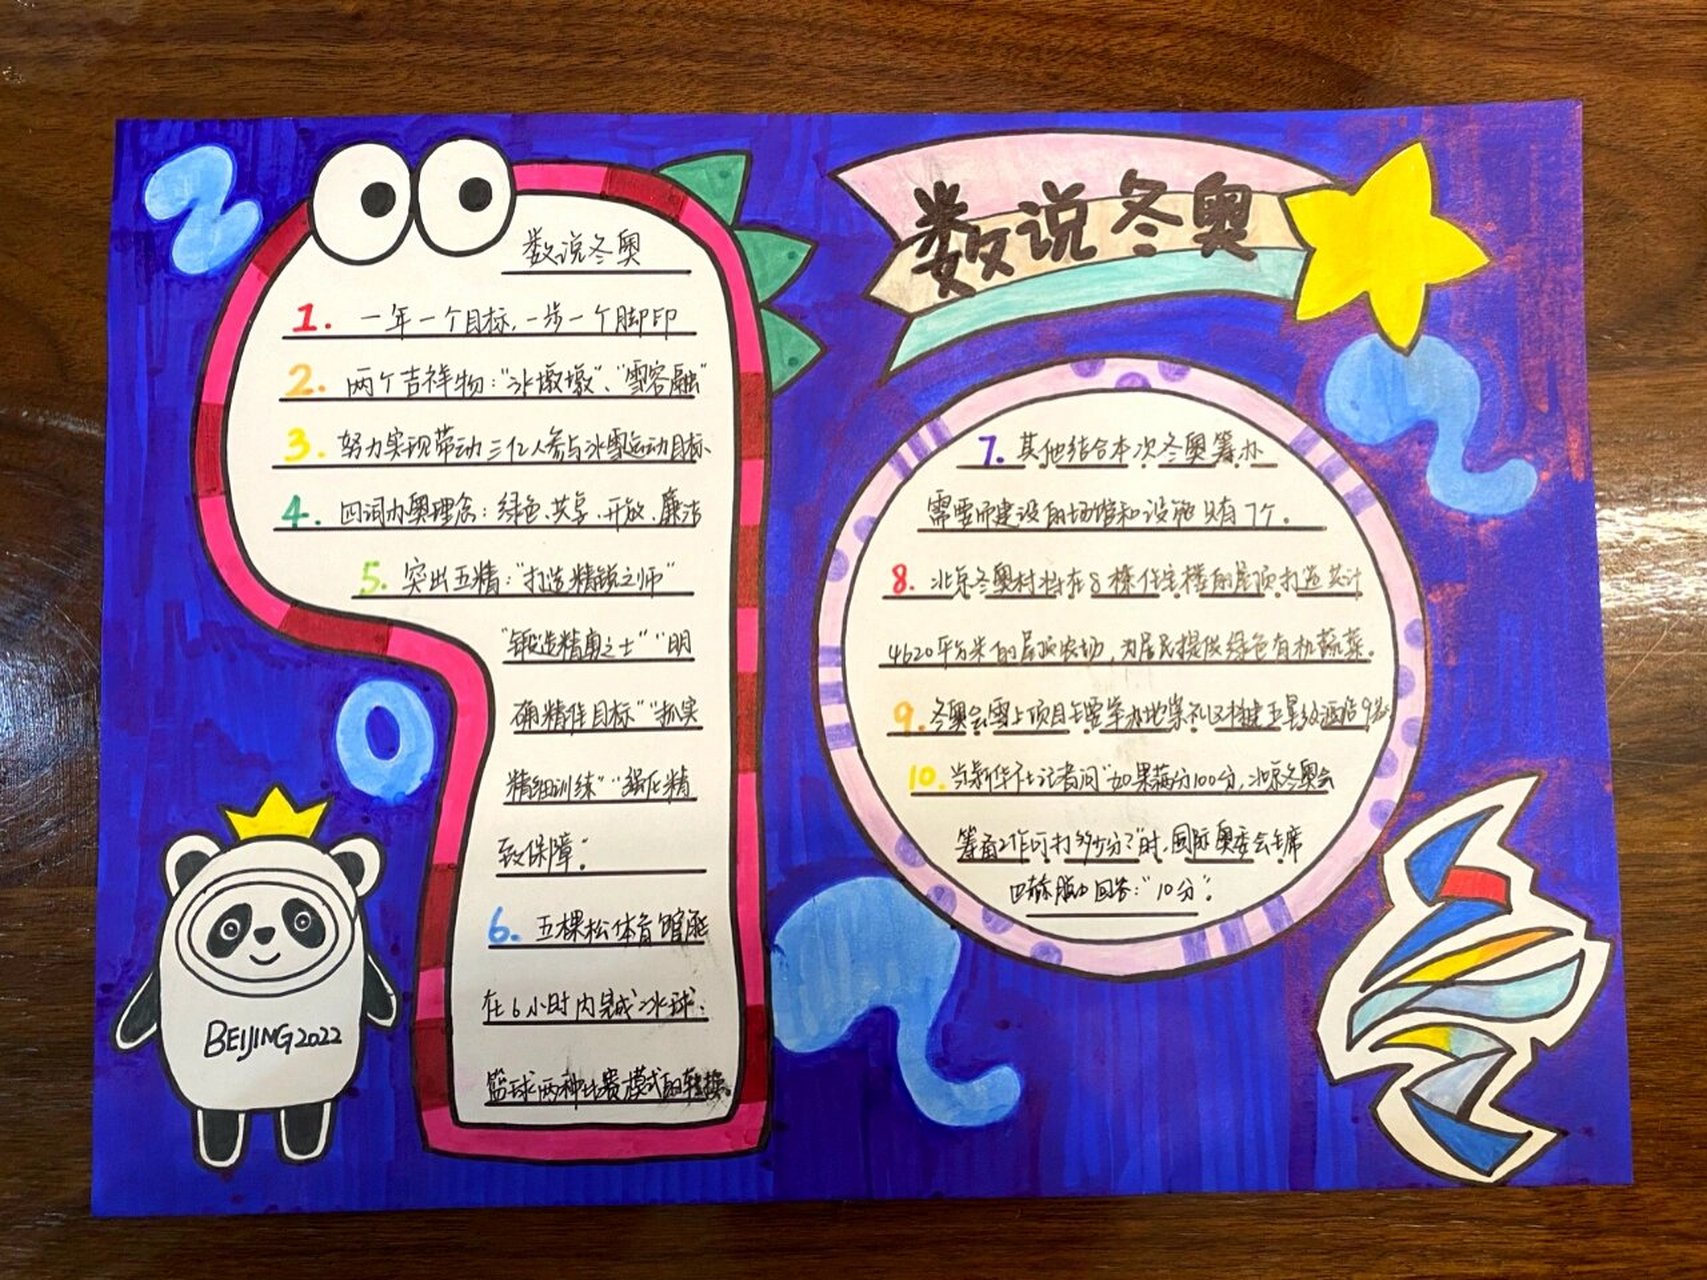 数说冬奥
数说冬奥
1. 一年一个目标，一步一个脚印
2. 两个吉祥物：“冰墩墩”、“雪容融”
3. 努力实现带动三亿人参与冰雪运动目标
4. 四词办奥理念：绿色、共享、开放、廉洁
5. 突出五精：“打造精锐之师”
“锻造精勇之士”“明
确精准目标”“抓实
精细训练”“强化精
致保障”
6. 五棵松体育馆能
在6小时内完成冰球、
篮球两种比赛模式的转换。
7. 其他结合本次冬奥筹办
需要而建设的场馆和设施只有7个。
8. 北京冬奥村将在8栋住宅楼的屋顶打造共计
4620平方米的屋顶农场，为居民提供绿色有机蔬菜。
9. 冬奥会雪上项目主要举办地崇礼区推建五星级酒店9家
10. 当新华社记者问“如果满分100分，北京冬奥会
筹备工作可打多少分？”时，国际奥委会主席
巴赫脱口回答：“10分”。
2
0
2
2
BEIJING2022